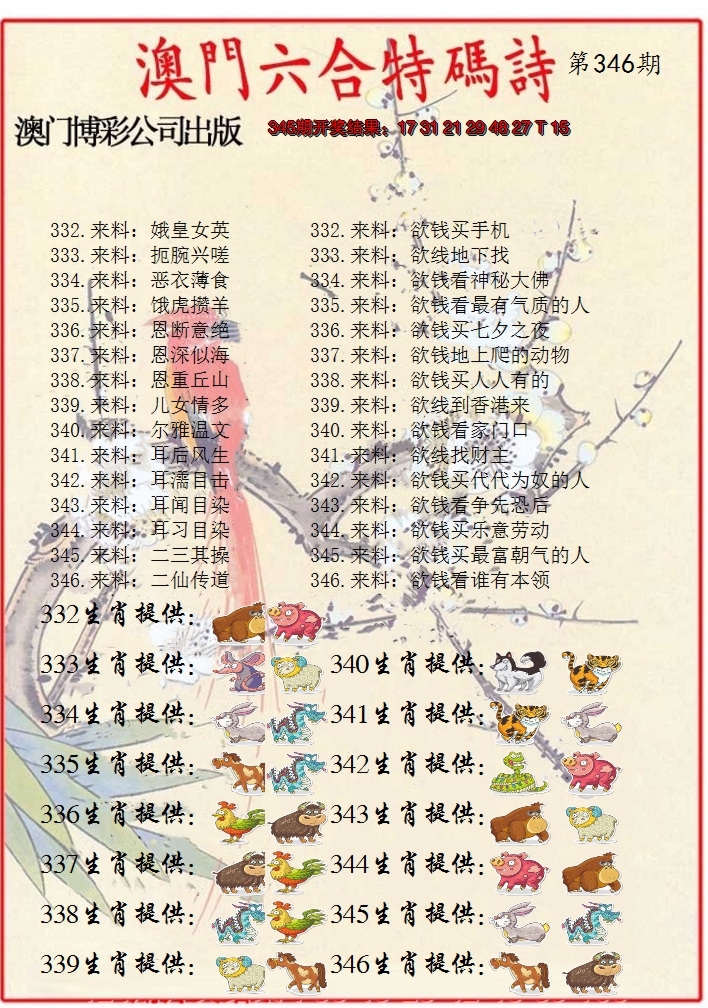 澳門六合特碼詩 第346期
澳门博彩公司出版 345期开奖结果：17 31 21 29 48 27 T 15
332.来料：娥皇女英 332.来料：欲钱买手机
333.来料：扼腕兴嗟 333.来料：欲线地下找
334.来料：恶衣薄食 334.来料：欲钱看神秘大佛
335.来料：饿虎攒羊 335.来料：欲钱看最有气质的人
336.来料：恩断意绝 336.来料：欲钱买七夕之夜
337.来料：恩深似海 337.来料：欲钱地上爬的动物
338.来料：恩重丘山 338.来料：欲钱买人人有的
339.来料：儿女情多 339.来料：欲线到香港来
340.来料：尔雅温文 340.来料：欲钱看家门口
341.来料：耳后风生 341.来料：欲线找财主
342.来料：耳濡目击 342.来料：欲钱买代代为奴的人
343.来料：耳闻目染 343.来料：欲钱看争先恐后
344.来料：耳习目染 344.来料：欲钱买乐意劳动
345.来料：二三其操 345.来料：欲钱买最富朝气的人
346.来料：二仙传道 346.来料：欲钱看谁有本领
332生肖提供：
333生肖提供： 340生肖提供：
334生肖提供： 341生肖提供：
335生肖提供： 342生肖提供：
336生肖提供： 343生肖提供：
337生肖提供： 344生肖提供：
338生肖提供： 345生肖提供：
339生肖提供： 346生肖提供：